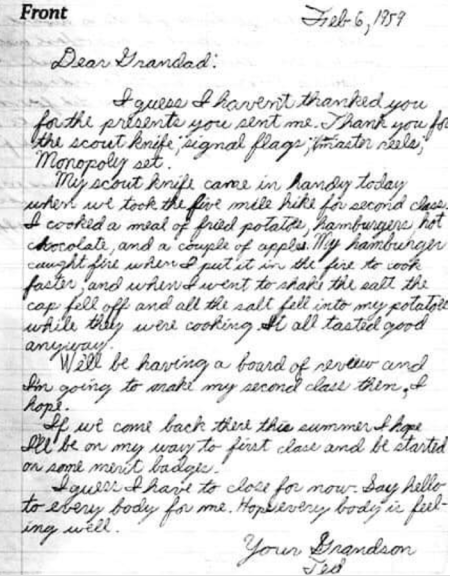 Front
Feb 6, 1959
Dear Grandad:
I guess I haven't thanked you
for the presents you sent me. Thank you for
the scout knife, signal flags, master reels,
Monopoly set.
My scout knife came in handy today
when we took the five mile hike for second class.
I cooked a meal of fried potatos, hamburgers, hot
chocolate, and a couple of apples. My hamburger
caught fire when I put it in the fire to cook
faster, and when I went to shake the salt the
cap fell off and all the salt fell into my potatoes
while they were cooking. It all tasted good
anyway.
We'll be having a board of review and
I'm going to make my second class then, I
hope.
If we come back there this summer I hope
I'll be on my way to first class and be started
on some merit badges.
I guess I have to close for now. Say hello
to every body for me. Hope every body is feel-
ing well.
Your Grandson
Ted